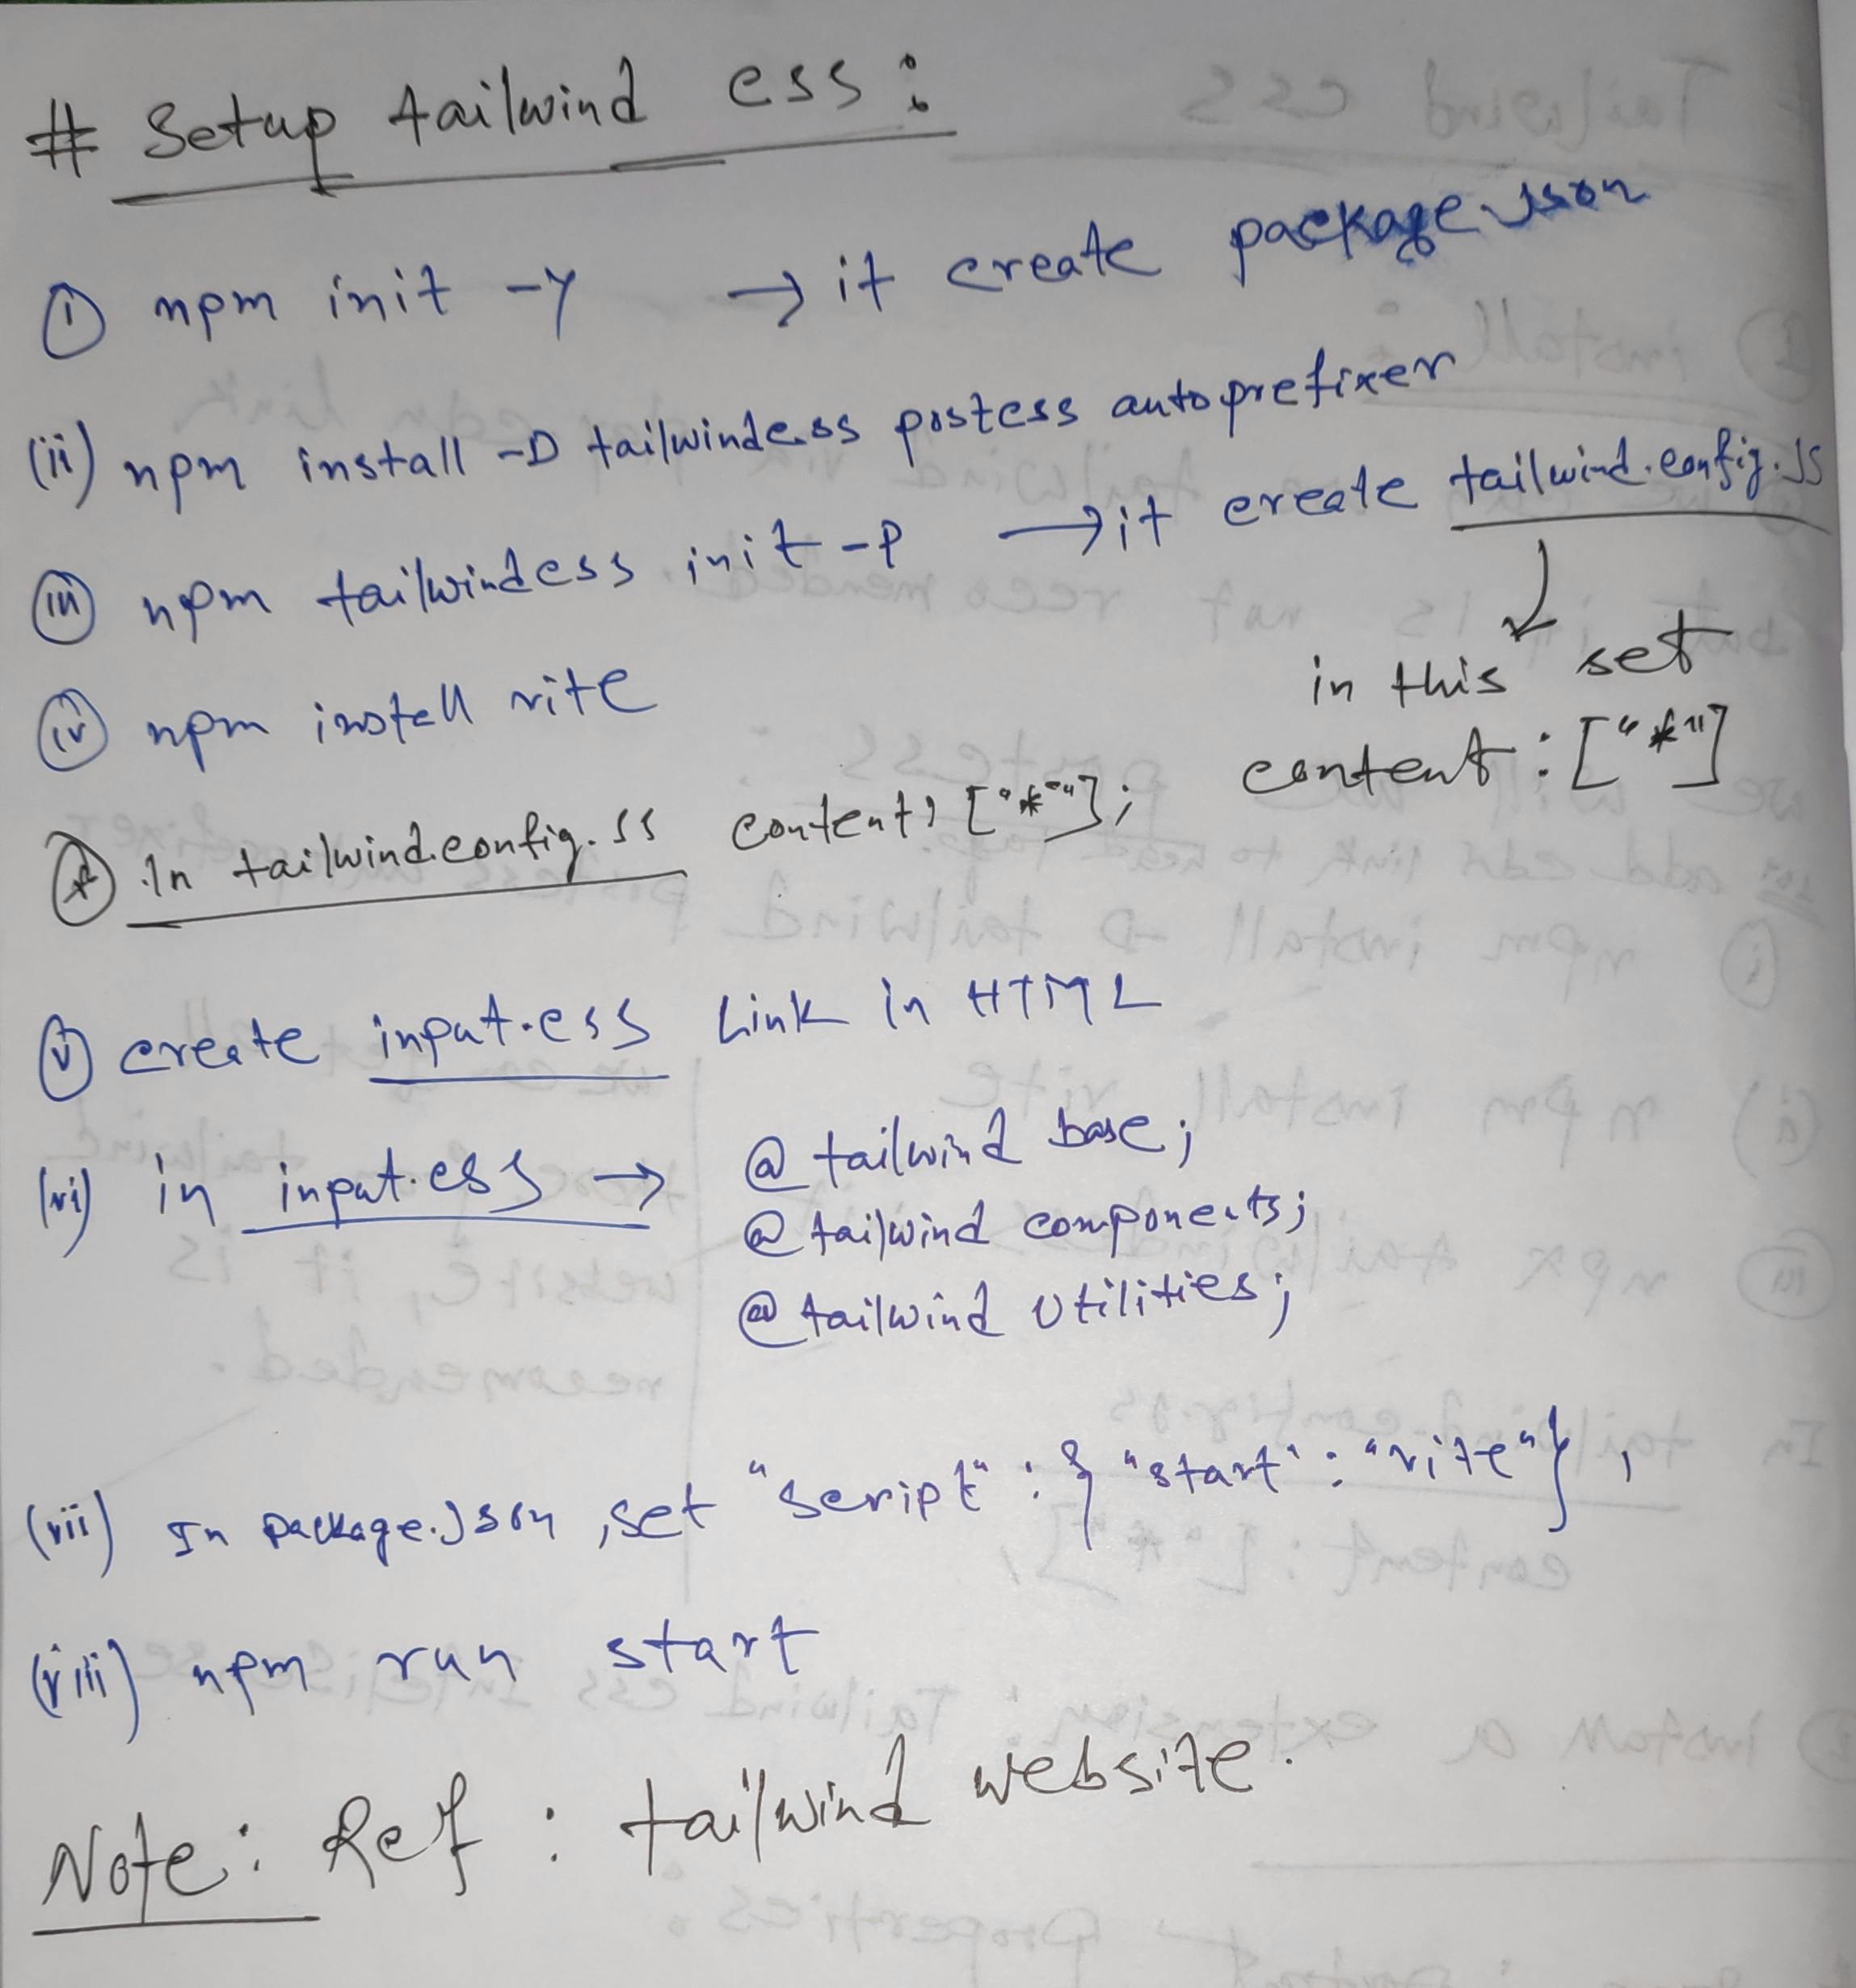 # Setup tailwind css :
(i) npm init -y → it create package.json
(ii) npm install -D tailwindcss postcss autoprefixer
(iii) npm tailwindcss init -p → it create tailwind.config.js
in this set
content : ["*"]
(iv) npm install vite
* In tailwind.config.js content: ["*"];
(v) create input.css Link in HTML
(vi) in input.css → @tailwind base;
@tailwind components;
@tailwind utilities;
(vii) In package.json, set "script" : { "start" : "vite" },
(viii) npm run start
Note: Ref : tailwind website.